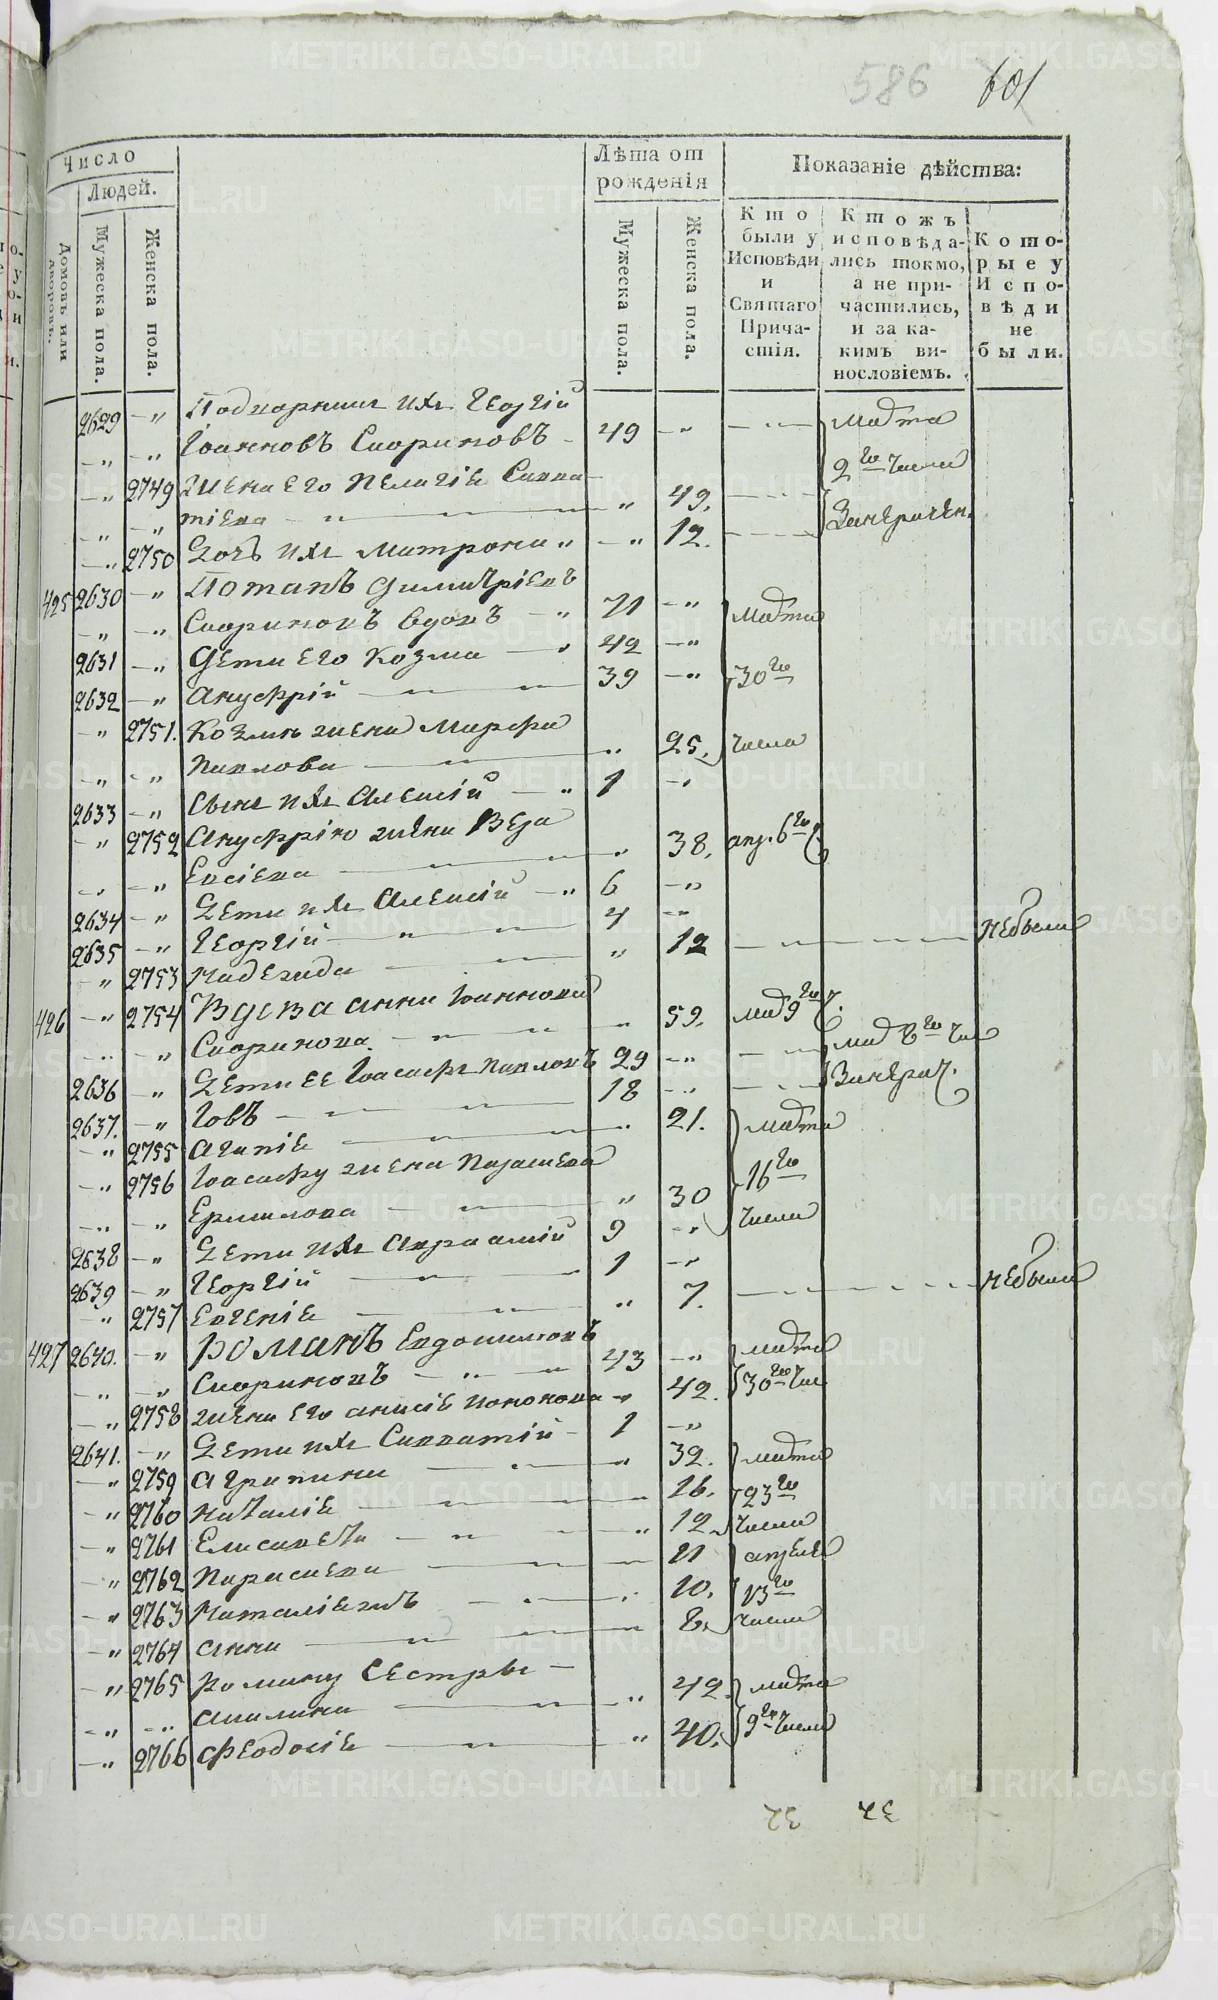 586 601
Число
Людей.
Домовъ или дворовъ.
Мужеска пола.
Женска пола.
Лѣта от рожденія
Мужеска пола.
Женска пола.
Показаніе дѣйства:
Кто были у Исповѣди и Святаго Прича-стія.
Ктожъ исповѣда-лись токмо, а не при-частились, и за ка-кимъ ви-нословіемъ.
Кото-рые у Испо-вѣди не были.
2629 Георгій
Іоанновъ Скориновъ 49 марта
2749 жена его Пелагіе Савва- 2го числа
тіева 49.
2750 дочь их Матрона 12.
425 2630 Потапъ Димитріевъ
Скориновъ вдовъ 71 марта
2631 Дети его Козма 42
2632 Ануфрій 39 30го
2751. Козмы жена Марфа
Павлова 25. числа
2633 Сынъ их Алексій 1
2752 Ануфрію жена Вера
Евсіева 38. апр. 6го ч.
2634 Дети их Алексій 6
2635 Георгій 4
2753 Надежда 12 небыли
426 2754 Вдова Анна Іоаннова
Скоринова 59. мар 9го ч.
2636 Дети ее Іоасафъ Павловъ 29
2637. Іовъ 18
2755 Агапіе 21. марта
2756 Іоасафу жена Параскева
Ермилова 30 16го числа
2638 Дети их Авраамій 9
2639 Георгій 1
2757 Евгеніе 7. небыли
427 2640. Романъ Евдокимовъ марта
Скориновъ 43 30го чис
2758 жена его Анисіе 42.
2641. Дети их Савватій 1
2759 Агрипина 32. марта
2760 Наталіе 16. 23го
2761 Елисавета 12 числа
2762 Параскева 11 апреля
2763 Наталіе жъ 10. 13го
2764 Анна 8. числа
2765 Роману сестры
Акилина 42 марта
2766 Феодосіе 40. 9го числа
METRIKI.GASO-URAL.RU